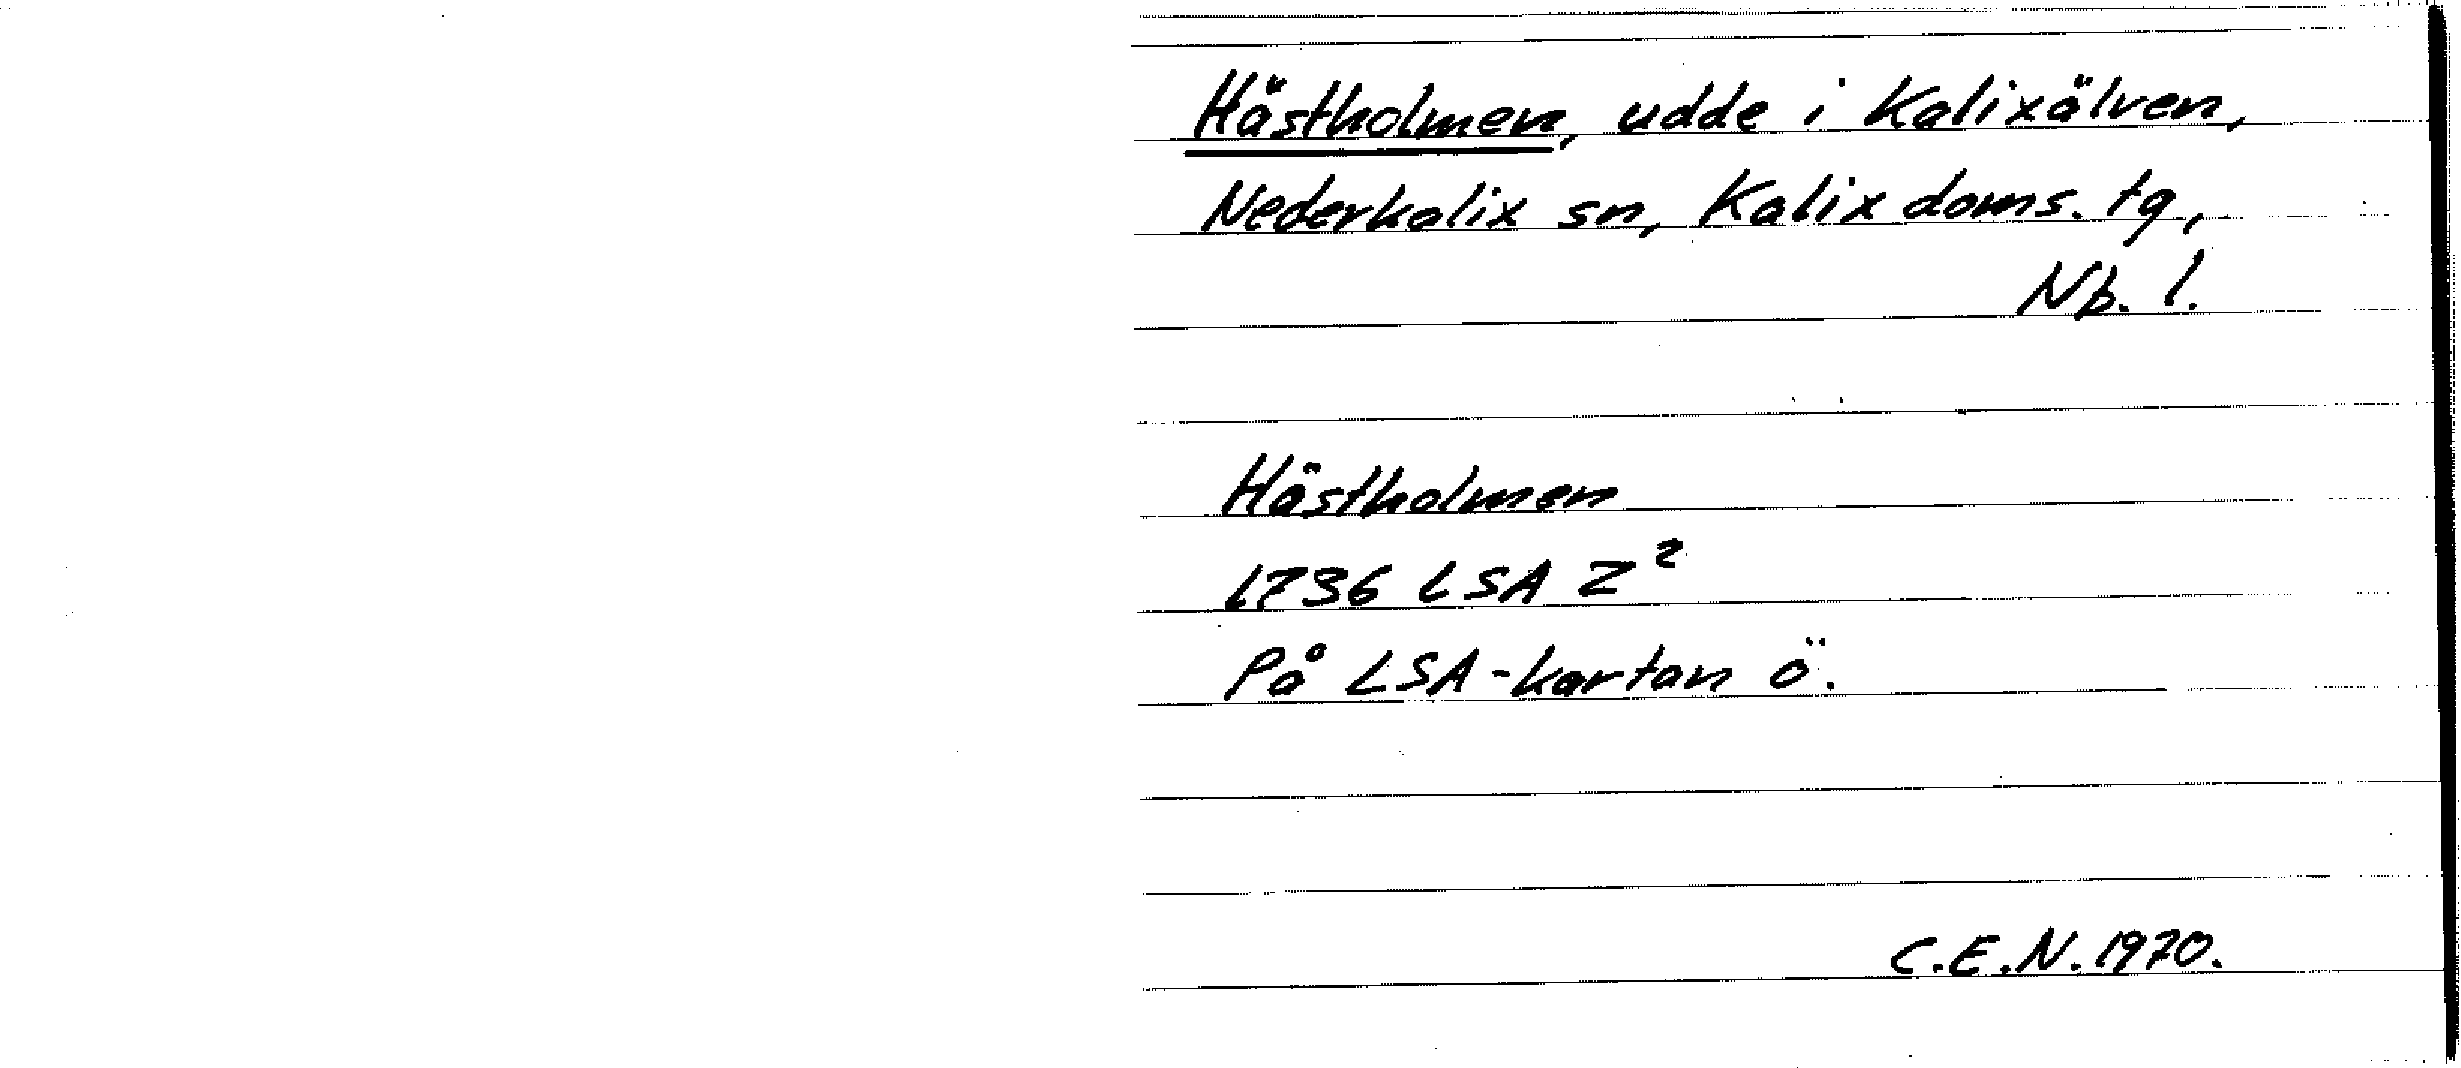 Hästholmen, udde i Kalixälven,
Nederkalix sn, Kalix doms. tg,
Nb. l.
Hästholmen
1736 LSA Z²
På LSA-kartan ö.
C.E.N. 1970.